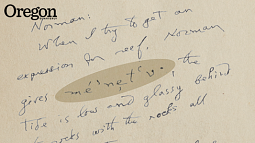 Oregon
Norman:
When I try to get an
expression for reef. Norman
gives
the
Tide is low and glassy behind
rocks with the rocks all